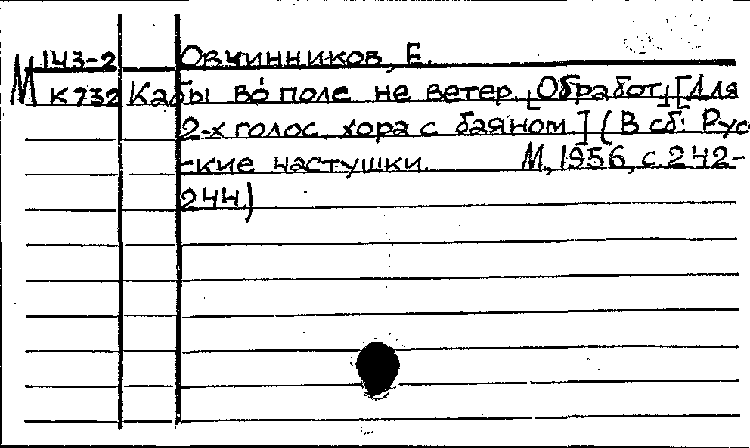 143-2 Овчинников, Е.
М К732 Кабы во́ поле не ветер. [Обработ.] [Для
2-х голос. хора с баяном.] (В сб: Рус-
-ские частушки. М., 1956, с. 242-
244)